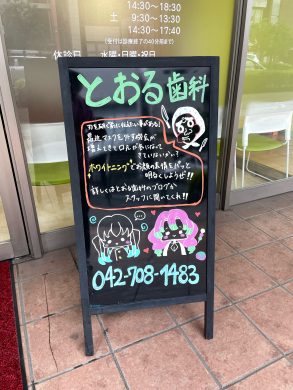 14:30〜18:30
土 9:30〜13:30
14:30〜17:40
(受付は診療終了の40分前まで)
休診日 水曜・日曜・祝日
とおる歯科
最近マスクを外す機会が
増えたきせ口元が気になって
きていないかい?
ホワイトニングでお顔の表情をパッと
明るくしようぜ!!
詳しくはとおる歯科のブログか
スタッフに聞いてくれ!!
042-708-1483